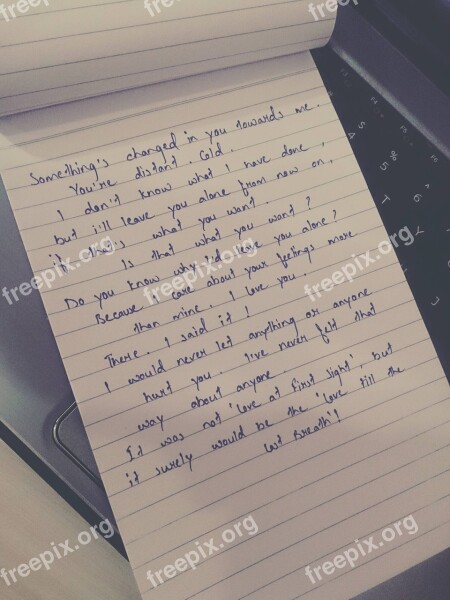 Something's changed in you towards me.
You're distant. Cold.
I don't know what I have done,
but i'll leave you alone from now on,
if that's what you want.
Is that what you want?
Do you know why I'd leave you alone?
Because I care about your feelings more
than mine. I love you.
There. I said it!
I would never let anything or anyone
hurt you. I've never felt that
way about anyone.
It was not 'love at first sight', but
it surely would be the 'love till the
last Breath'!
% 5
6
T
Y
freepix.org
freepix.org
freepix.org
freepix.org
freepix.org
freepix.org
freepix.org